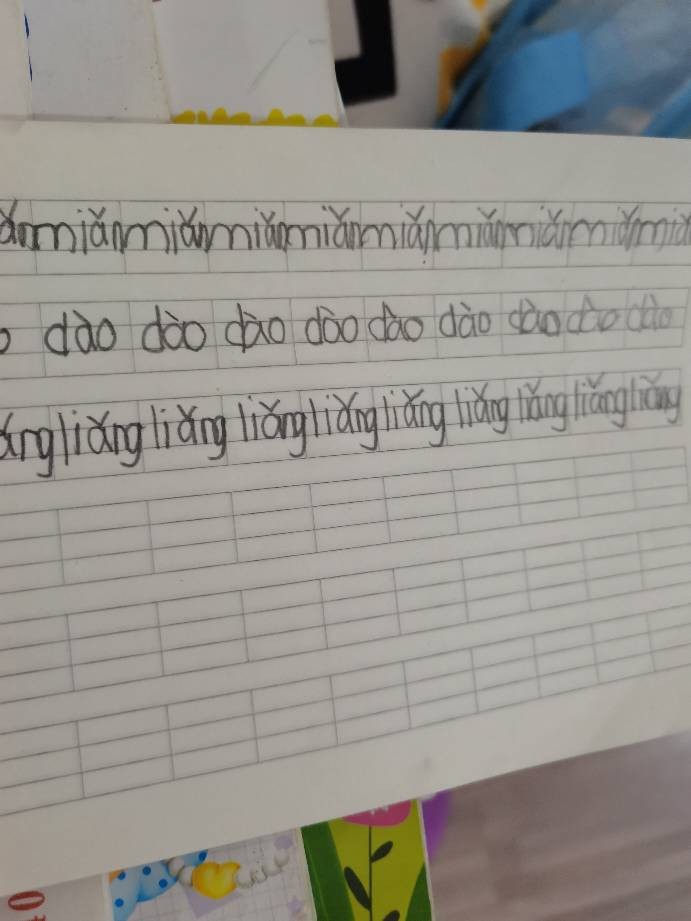 ǎn miǎn miǎn miǎn miǎn miǎn miǎn miǎn miǎn miǎ
o dào dào dào dào dào dào dào dào dào
ǎng liǎng liǎng liǎng liǎng liǎng liǎng liǎng liǎng liǎng
0